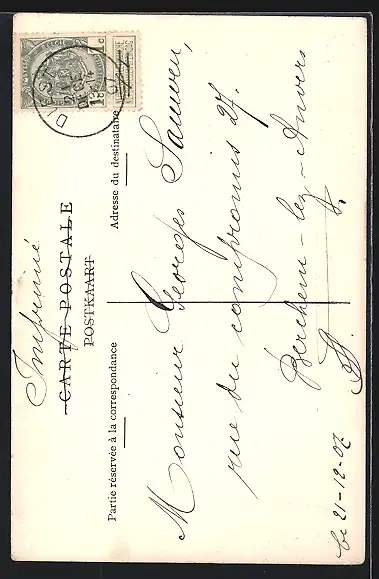 Imprimé
CARTE POSTALE
POSTKAART
Partie réservée à la correspondance
Adresse du destinataire
Monsieur Georges Sauwen,
rue du compromis 27.
Berchem-lez-Anvers
le 21-12-07
DIEST